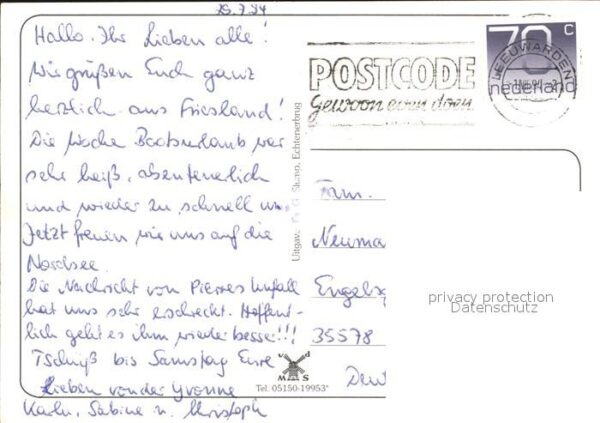 29.7.94
Hallo Ihr Lieben alle!
Wir grüßen Euch ganz
herzlich aus Friesland!
Die Woche Bootsurlaub war
sehr heiß, abenteuerlich
und wieder zu schnell
Jetzt freuen wir uns auf die
Nordsee.
Die Nachricht von Pierres Unfall
hat uns sehr erschreckt. Hoffent-
lich geht es ihm wieder besser!!!
Tschüß bis Samstag Eure
Lieben von der Yvonne
Karln, Sabine u. Christoph
70 c
nederland
LEEUWARDEN
POSTCODE
Gewoon even doen
Uitgav. Stamp, Echtenerbrug
Fam.
Neuma
Engels
35578
privacy protection
Datenschutz
v d
W S
Tel. 05150-19953*